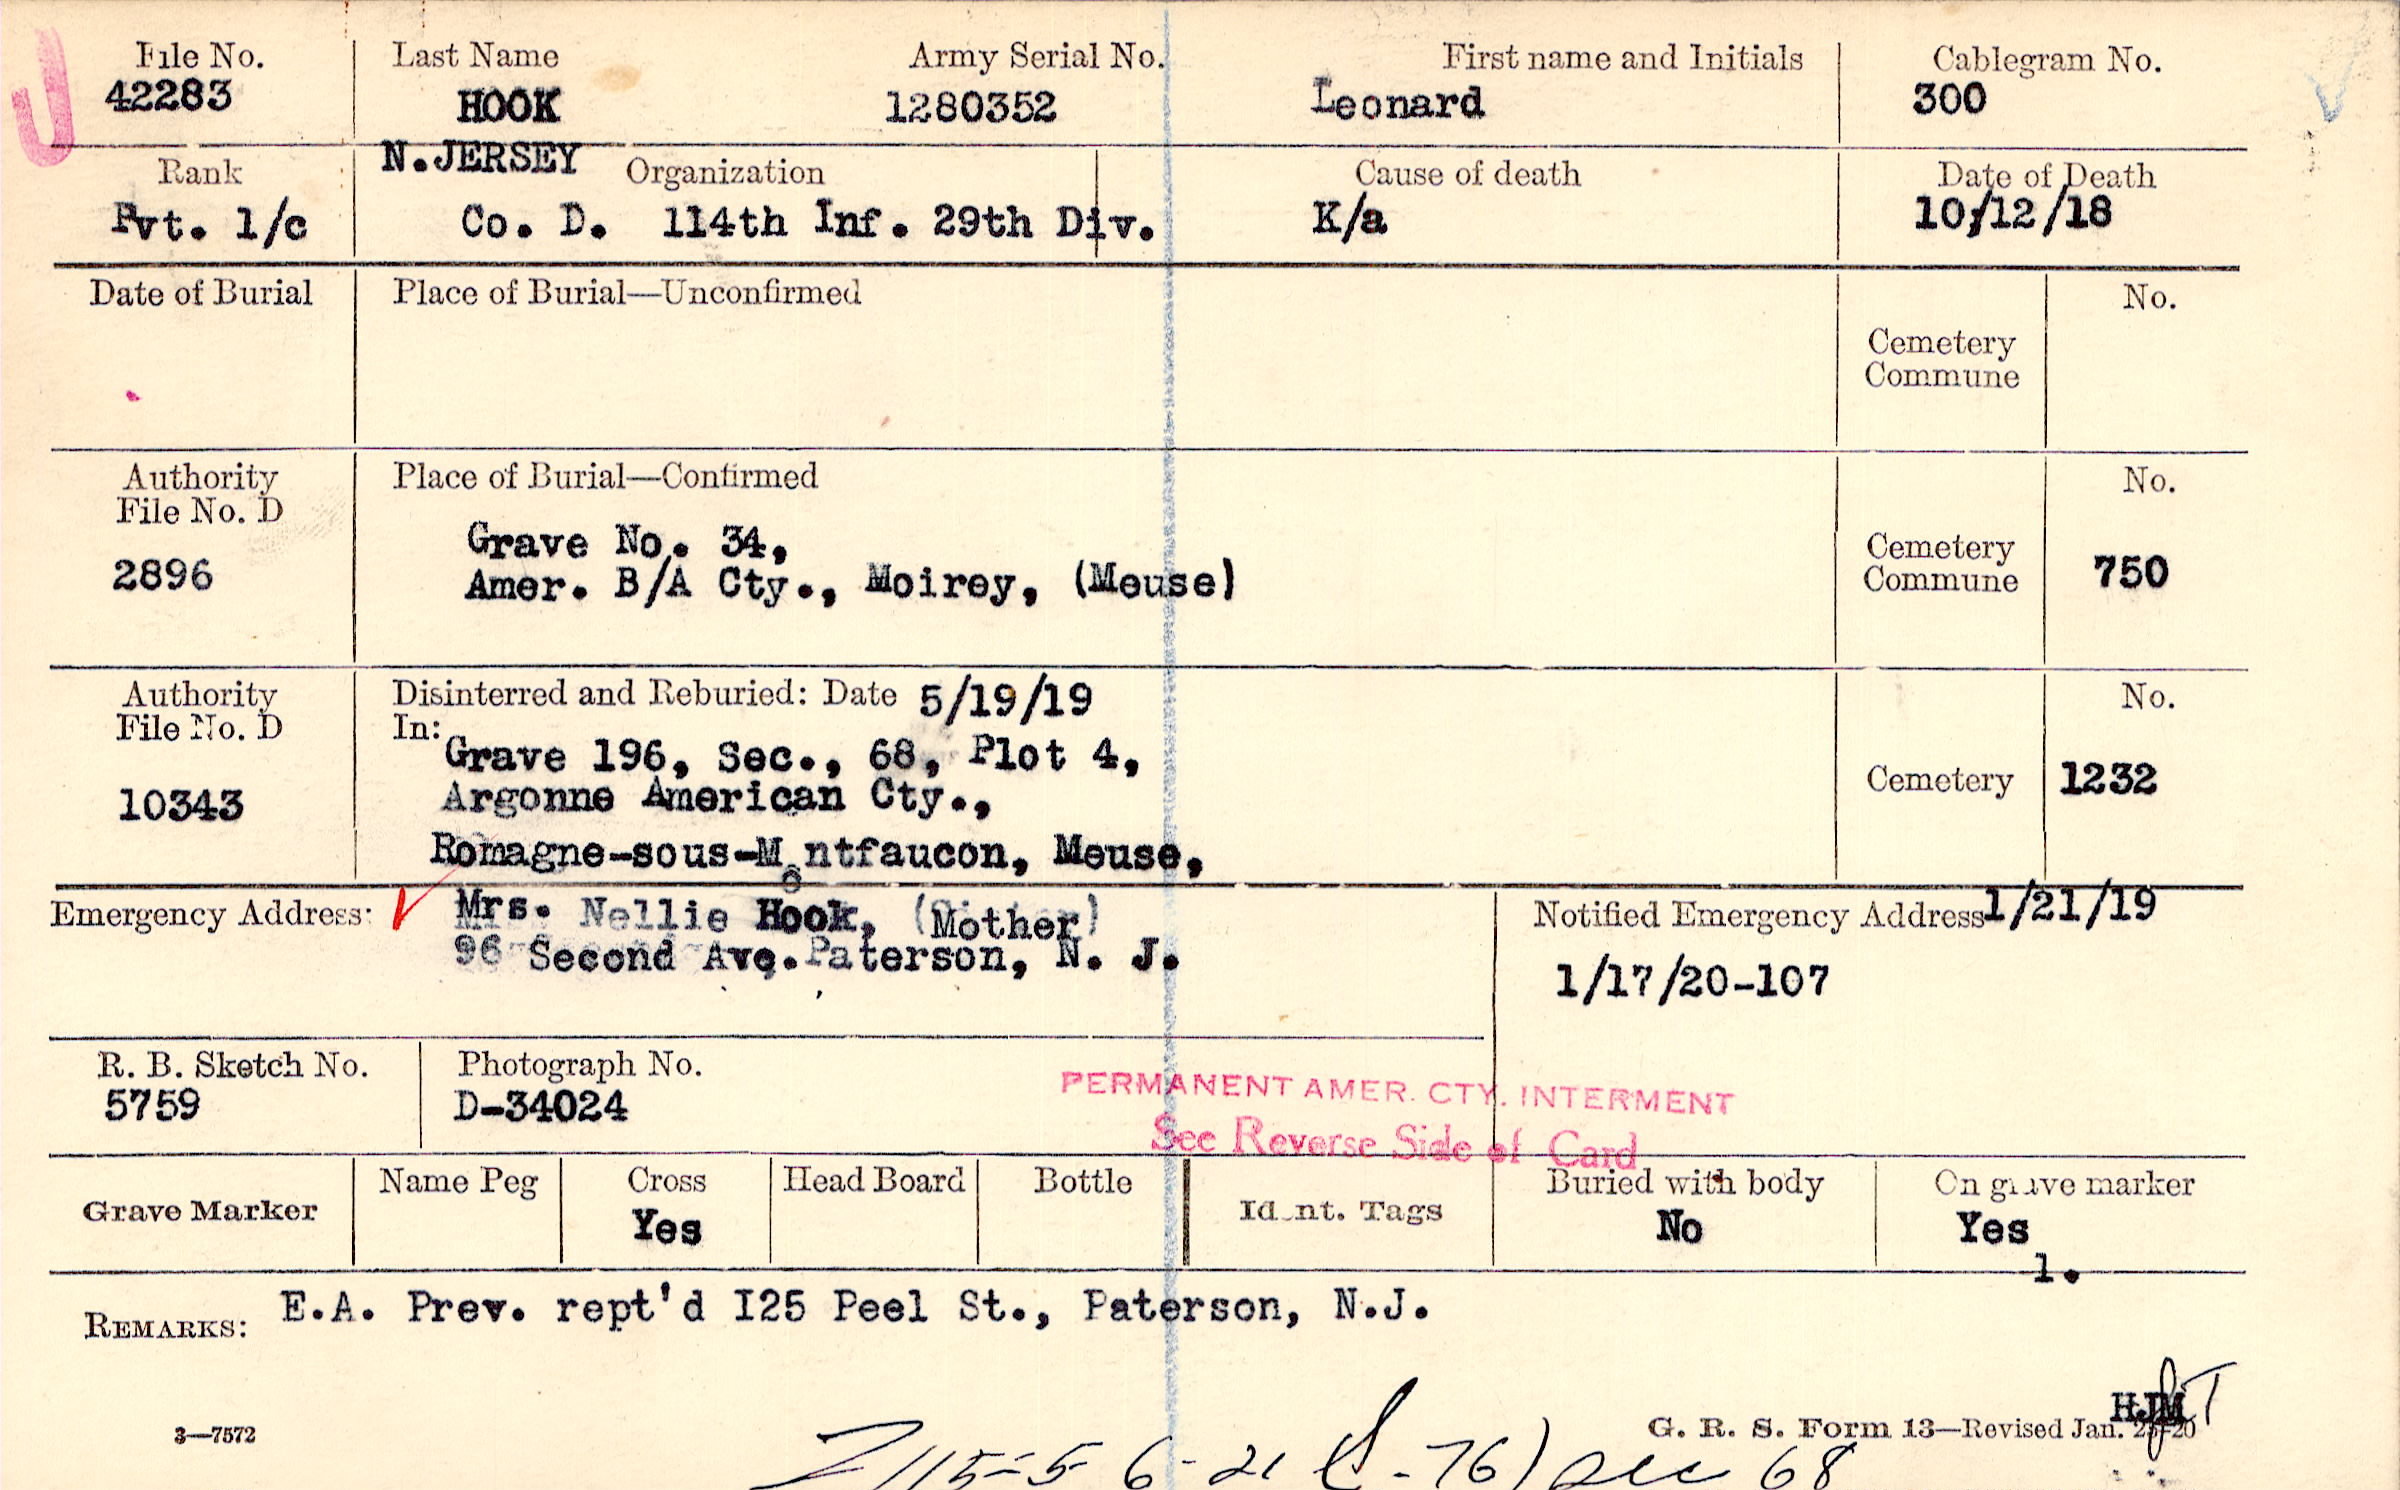 File No. Last Name Army Serial No. First name and Initials Cablegram No.
42283 HOOK 1280352 Leonard 300
N.JERSEY
Rank Organization Cause of death Date of Death
Pvt. 1/c Co. D. 114th Inf. 29th Div. K/a 10/12/18
Date of Burial Place of Burial—Unconfirmed No.
Cemetery
Commune
Authority Place of Burial—Confirmed No.
File No. D
Grave No. 34,
2896 Amer. B/A Cty., Moirey, (Meuse) Cemetery
Commune 750
Authority Disinterred and Reburied: Date 5/19/19 No.
File No. D In:
Grave 196, Sec., 68, Plot 4,
10343 Argonne American Cty., Cemetery 1232
Romagne-sous-Montfaucon, Meuse,
Emergency Address: Mrs. Nellie Hook, (Mother) Notified Emergency Address 1/21/19
96 Second Ave. Paterson, N. J.
1/17/20-107
R. B. Sketch No. Photograph No.
5759 D-34024
PERMANENT AMER. CTY. INTERMENT
See Reverse Side of Card
Grave Marker Name Peg Cross Head Board Bottle Ident. Tags Buried with body On grave marker
Yes No Yes
1.
REMARKS: E.A. Prev. rept'd I25 Peel St., Paterson, N.J.
HJM
3—7572 G. R. S. Form 13—Revised Jan.
6-21 68